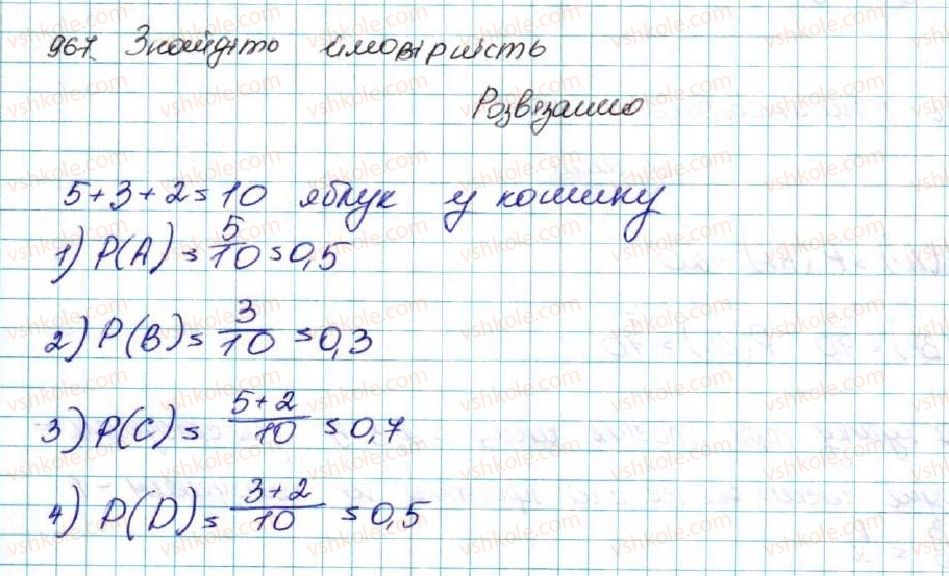 967. Знайдіть ймовірність
Розв'язання
5+3+2=10 яблук у кошику
1) P(A) = 5/10 = 0,5
2) P(B) = 3/10 = 0,3
3) P(C) = 5+2/10 = 0,7
4) P(D) = 3+2/10 = 0,5
vshkole.com